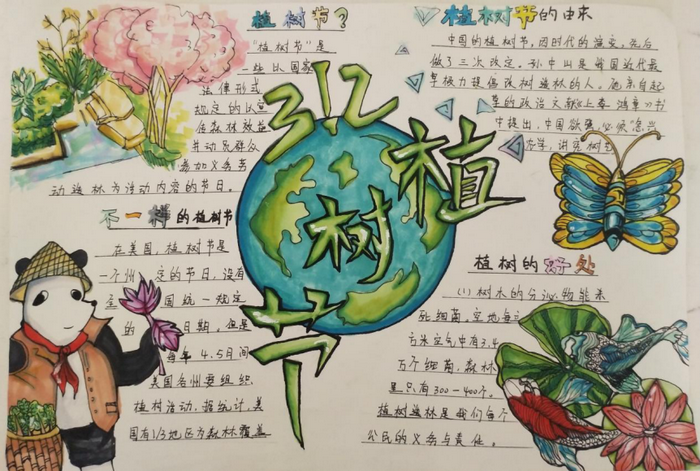 植树节?
"植树节"是
一些以国家
法律形式
规定的以宣
传森林效益
并动员群众
参加义务劳
动造林为活动内容的节日。
312
植
树
节
植树节的由来
中国的植树节,因时代的演变,先后
做了三次改定。孙中山是我国近代最
早极力提倡改树造林的人。他亲自起
草的政治文献《上奏鸿章》书
中提出,中国欲强,必须急兴
农学,讲究树艺
不一样的植树节
在美国,植树节是
一个州定的节日,没有
全国统一规定
的日期,但是
每年4.5月间
美国各州要组织
植树活动,据统计,美
国有1/3地区为森林覆盖
植树的好处
(1)树木的分泌物能杀
死细菌。空地每立
方米空气中有3.4
万个细菌,森林
里只有300-400个。
植树造林是我们每个
公民的义务与责任。